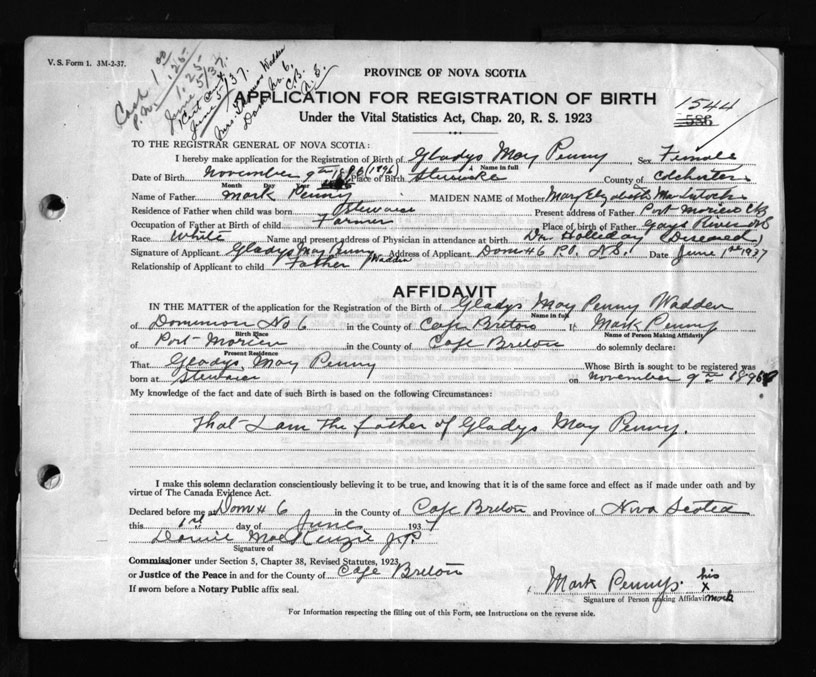 V. S. Form 1. 3M-2-37.
Cash 1.00
P.N. .25
1.25
June 5/37.
Cert
June 5/37.
Mrs. Thomas Wadden
Dom. No. 6,
C.B.
N.S.
PROVINCE OF NOVA SCOTIA
APPLICATION FOR REGISTRATION OF BIRTH
Under the Vital Statistics Act, Chap. 20, R. S. 1923
1544
586
TO THE REGISTRAR GENERAL OF NOVA SCOTIA:
I hereby make application for the Registration of Birth of Gladys May Penny Sex Female
Name in full
Date of Birth November 9th 1896 (1896) Place of Birth Stewiacke County of Colchester
Month Day Year
Name of Father Mark Penny MAIDEN NAME of Mother Mary Elizabeth
Residence of Father when child was born Present address of Father Port Morien CB
Occupation of Father at Birth of child Farmer Place of birth of Father Gays River NS
Race White Name and present address of Physician in attendance at birth Dr. Holleday (Diseased)
Signature of Applicant Gladys May Penny Wadden Address of Applicant Dom #6 N.S. Date June 1st 1937
Relationship of Applicant to child Father
AFFIDAVIT
IN THE MATTER of the application for the Registration of the Birth of Gladys May Penny Wadden
Name in full
of Dominion No 6 in the County of Cape Breton I, Mark Penny
Birth Place Name of Person Making Affidavit
of Port Morien in the County of Cape Breton do solemnly declare:
Present Residence
That Gladys May Penny Whose Birth is sought to be registered was
born at on November 9th 1896
My knowledge of the fact and date of such Birth is based on the following Circumstances:
That I am the father of Gladys May Penny.
I make this solemn declaration conscientiously believing it to be true, and knowing that it is of the same force and effect as if made under oath and by
virtue of The Canada Evidence Act.
Declared before me at Dom # 6 in the County of Cape Breton and Province of Nova Scotia
this 1st day of June 1937
MacKenzie J.P.
Signature of
Commissioner under Section 5, Chapter 38, Revised Statutes, 1923
or Justice of the Peace in and for the County of Cape Breton
If sworn before a Notary Public affix seal.
Mark Penny. his
x
Signature of Person making Affidavit mark
For Information respecting the filling out of this Form, see Instructions on the reverse side.